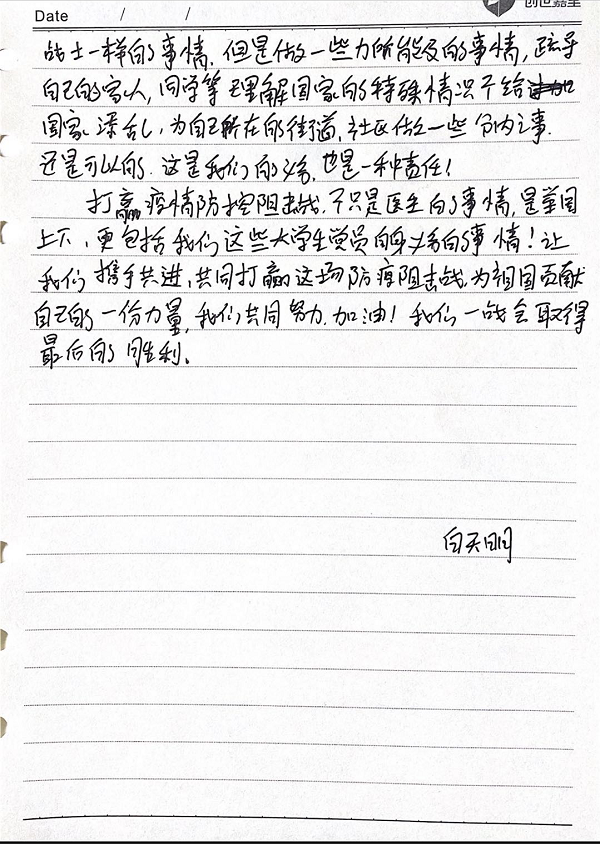 创世嘉里
Date / /
战士一样的事情.但是做一些力所能及的事情,疏导
自己的家人,同学等理解国家的特殊情况不给
国家添乱,为自己所在的街道,社区做一些分内之事.
还是可以的.这是我们的义务,也是一种责任!
打赢疫情防控阻击战.不只是医生的事情,是举国
上下,更包括我们这些大学生党员的义务的事情!让
我们携手共进,共同打赢这场防疫阻击战,为祖国贡献
自己的一份力量,我们共同努力.加油!我们一战会取得
最后的胜利.
白天明